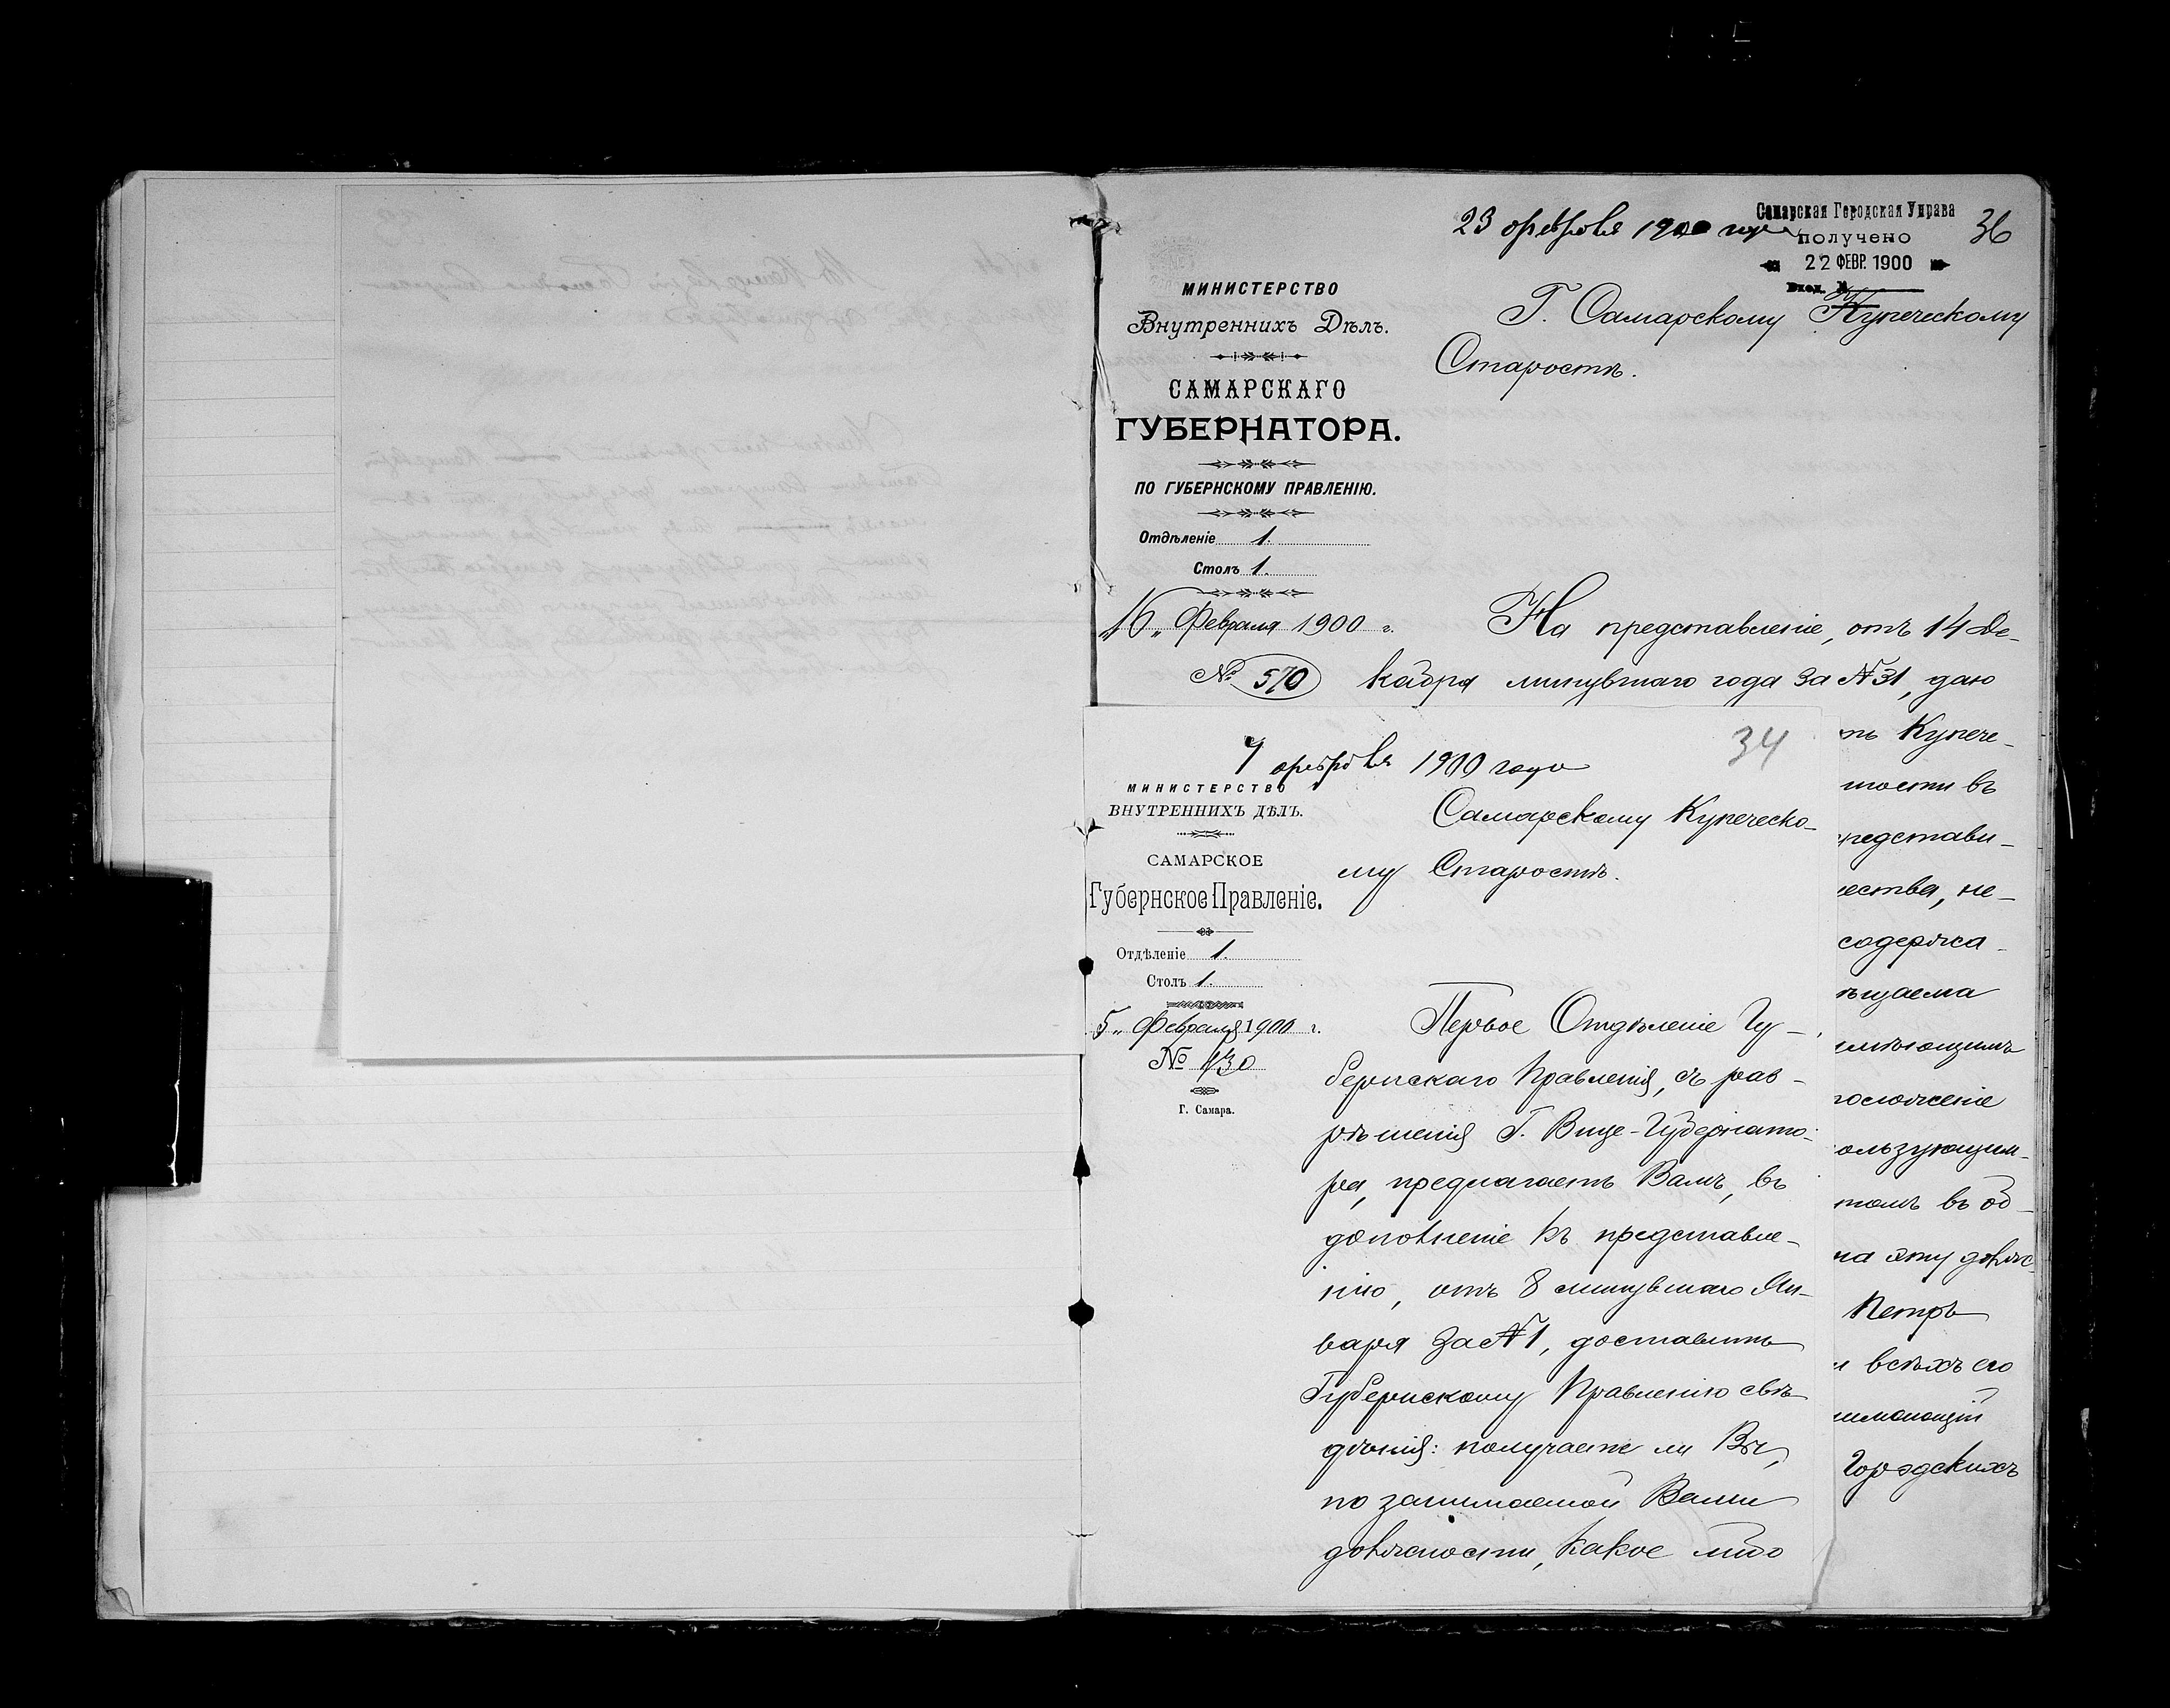 23 февраля 1900 года
Самарская Городская Управа
получено
22 ФЕВР. 1900
Вход. №
36
МИНИСТЕРСТВО
Внутреннихъ Дѣлъ.
САМАРСКАГО
ГУБЕРНАТОРА.
ПО ГУБЕРНСКОМУ ПРАВЛЕНІЮ.
Отдѣленіе 1.
Столъ 1.
16 „ Февраля 1900 г.
№ 570
Г. Самарскому Купеческому
Старостѣ.
На представленіе, отъ 14 Де-
кабря минувшаго года за № 31, даю
ть Купече-
ности въ
представи-
ества, не-
содержа-
ѣщаема
имѣющимъ
положеніе
ользующим-
томъ въ об-
на эту долж-
Петръ
и всѣхъ его
нимающій
Городскихъ
7 февраля 1900 года
34
МИНИСТЕРСТВО
ВНУТРЕННИХЪ ДѢЛЪ.
САМАРСКОЕ
Губернское Правленіе.
Отдѣленіе 1.
Столъ 1.
5 „ Февраля 1900 г.
№ 430
Г. Самара.
Самарскому Купеческо-
му Старостѣ.
Первое Отдѣленіе Гу-
бернскаго Правленія, съ раз-
рѣшенія Г. Вице-Губернато-
ра, предлагаетъ Вамъ, въ
дополненіе къ представле-
нію, отъ 8 минувшаго Ян-
варя за № 1, доставить
Губернскому Правленію свѣ-
дѣнія: получаете ли Вы,
по занимаемой Вами
должности, какое либо